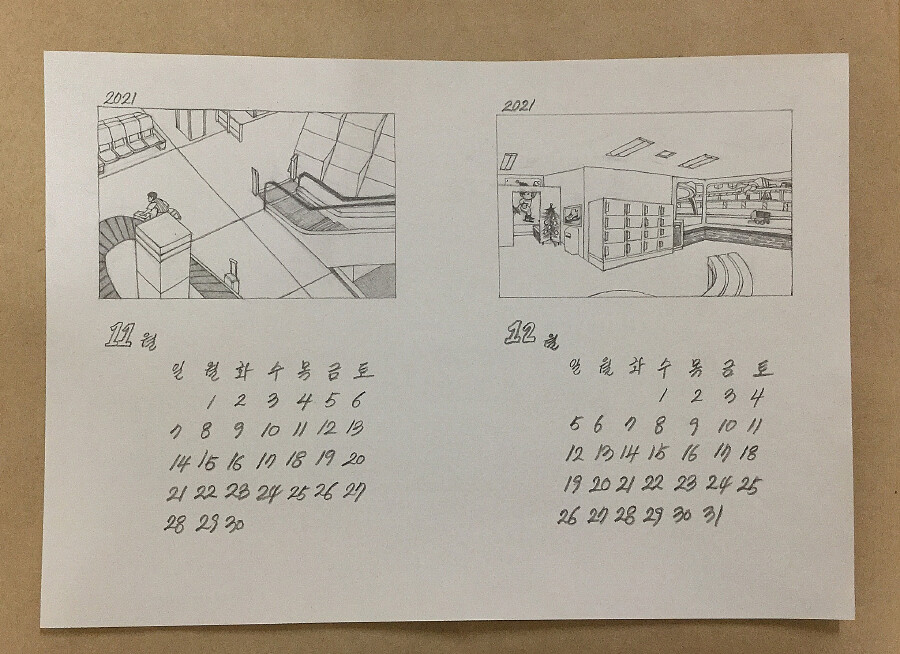 2021
11월
일 월 화 수 목 금 토
1 2 3 4 5 6
7 8 9 10 11 12 13
14 15 16 17 18 19 20
21 22 23 24 25 26 27
28 29 30
2021
12월
일 월 화 수 목 금 토
1 2 3 4
5 6 7 8 9 10 11
12 13 14 15 16 17 18
19 20 21 22 23 24 25
26 27 28 29 30 31